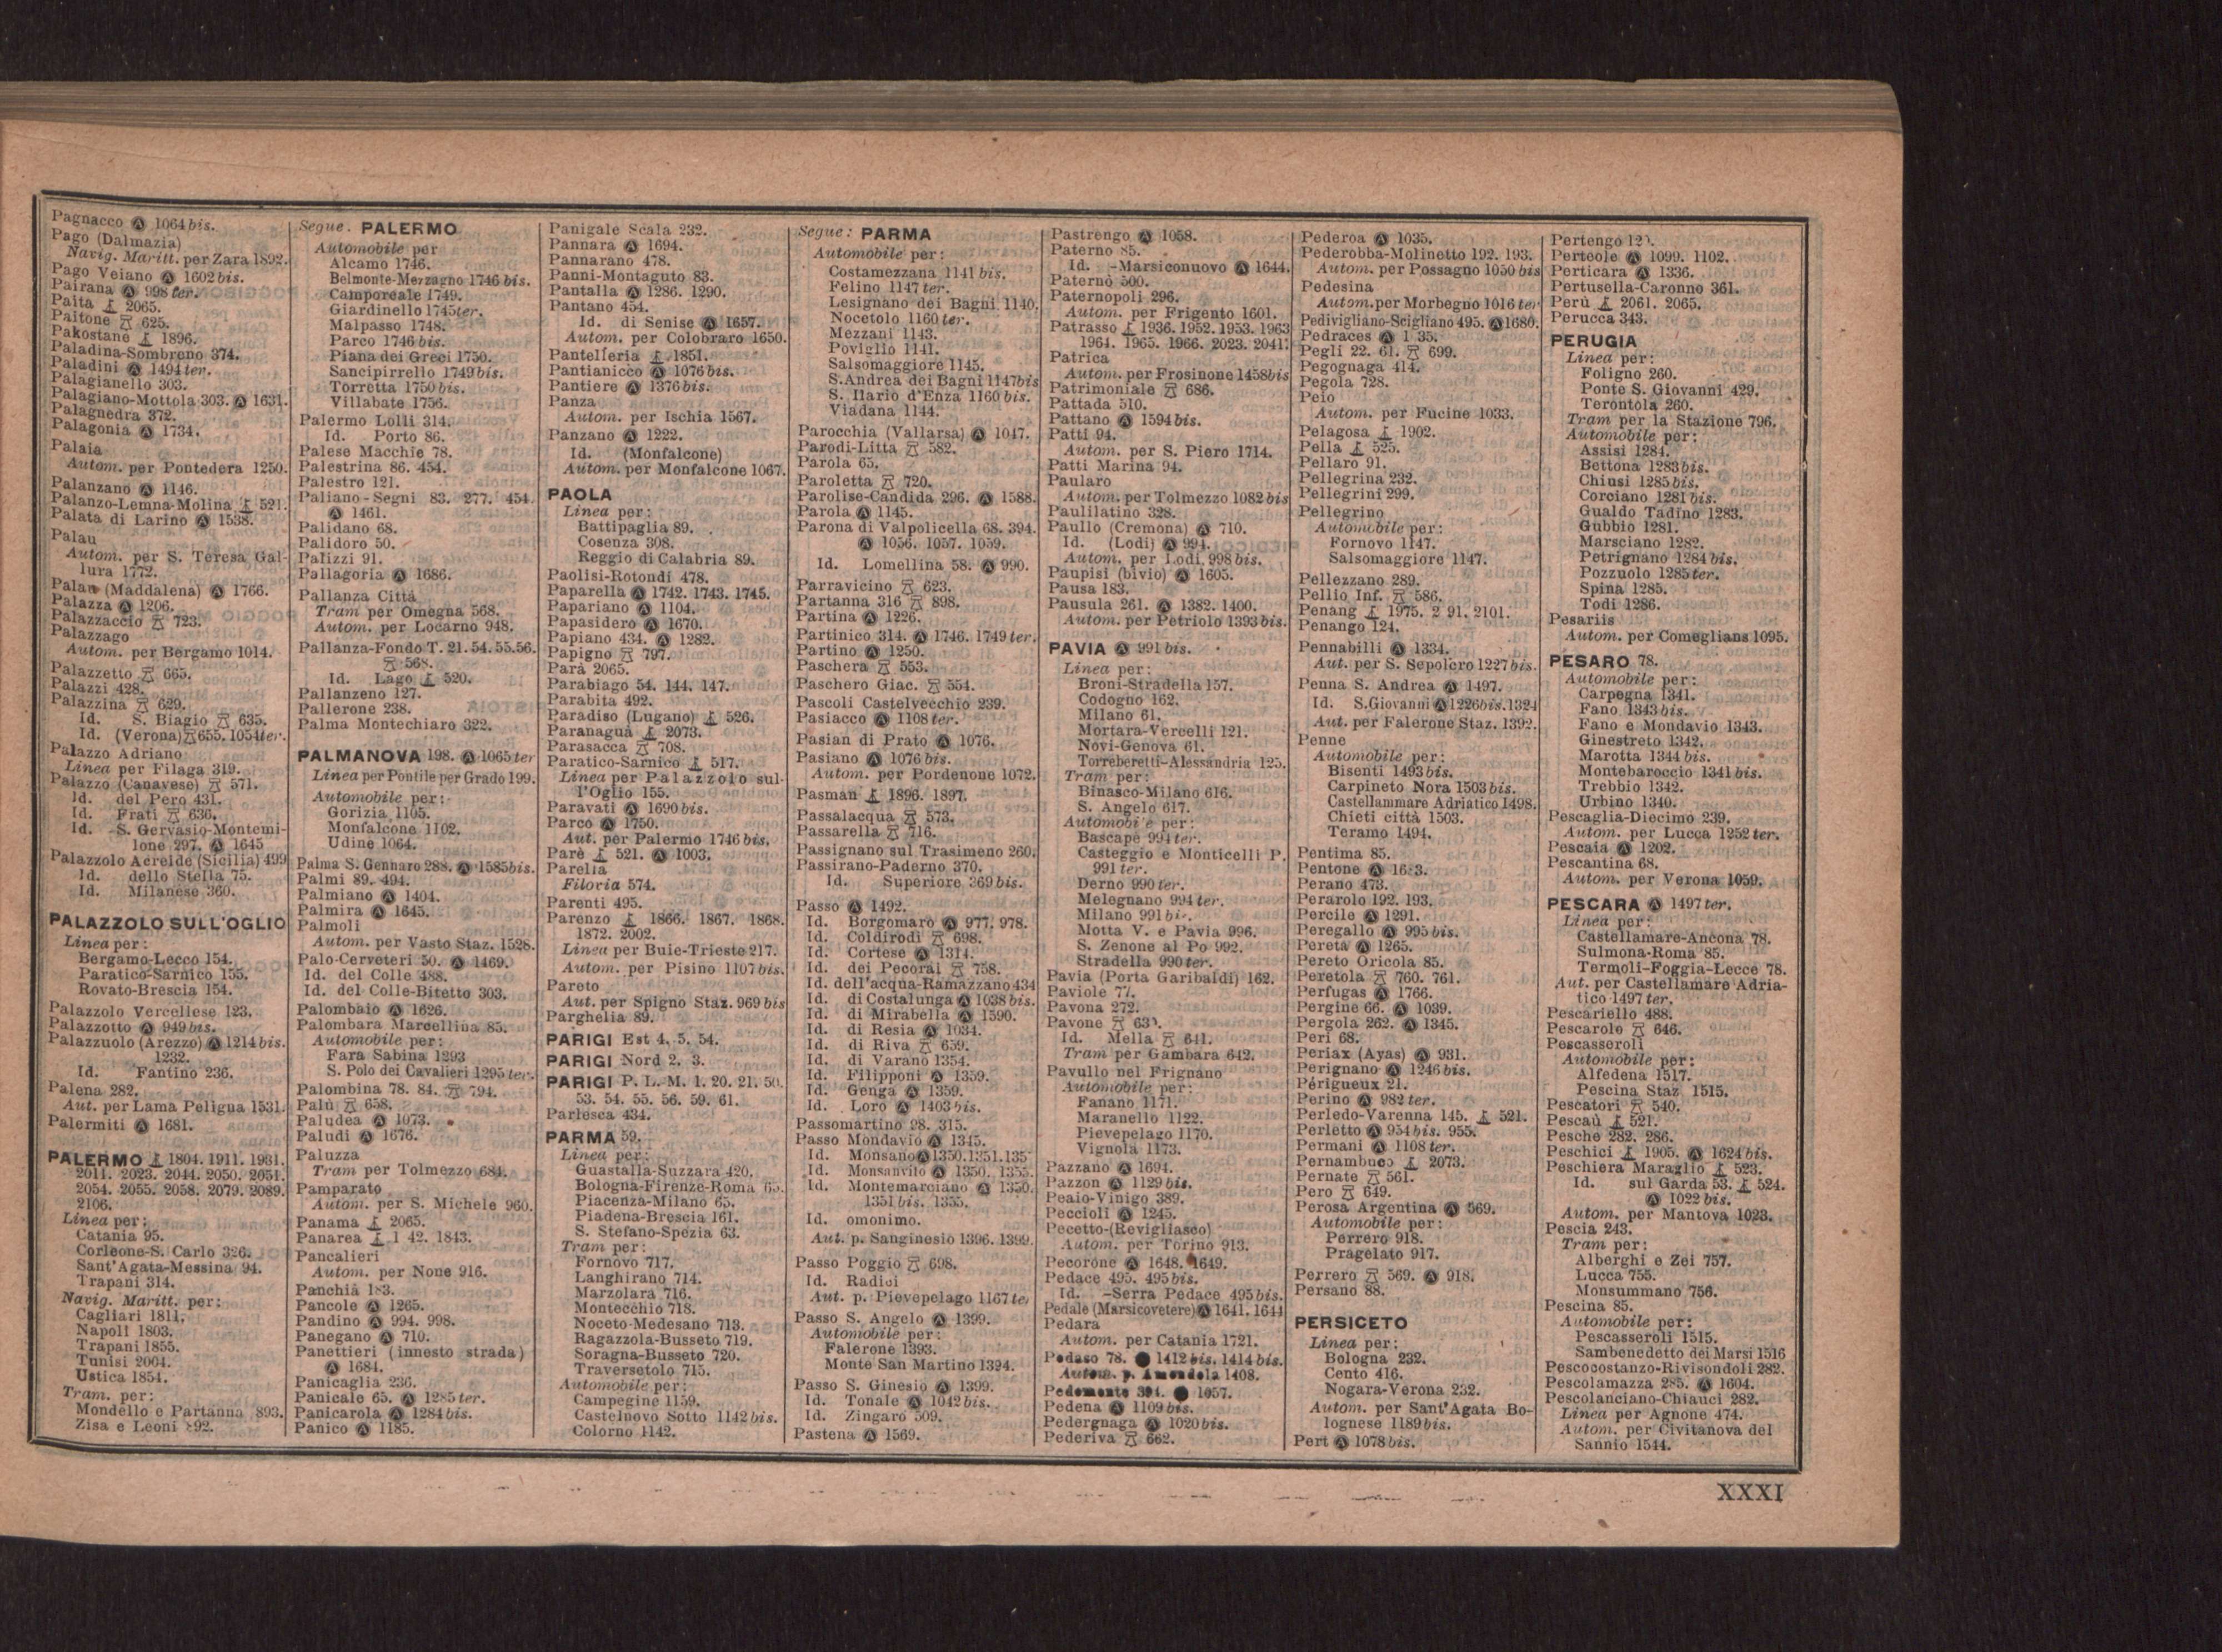 Pagnacco Ⓐ 1064 bis.
Pago (Dalmazia)
Navig. Maritt. per Zara 1892.
Pago Veiano Ⓐ 1602 bis.
Pairana Ⓐ 998 ter.
Paita ⚓ 2065.
Paitone 625.
Pakostane ⚓ 1896.
Paladina-Sombreno 374.
Paladini Ⓐ 1494 ter.
Palagianello 303.
Palagiano-Mottola 303. Ⓐ 1631.
Palagnedra 372.
Palagonia Ⓐ 1734.
Palaia
Autom. per Pontedera 1250.
Palanzano Ⓐ 1146.
Palanzo-Lemna-Molina ⚓ 521.
Palata di Larino Ⓐ 1538.
Palau
Autom. per S. Teresa Gal-
lura 1772.
Palau (Maddalena) Ⓐ 1766.
Palazza Ⓐ 1206.
Palazzaccio 723.
Palazzago
Autom. per Bergamo 1014.
Palazzetto 665.
Palazzi 428.
Palazzina 629.
Id. S. Biagio 635.
Id. (Verona) 655. 1054 ter.
Palazzo Adriano
Linea per Filaga 319.
Palazzo (Canavese) 571.
Id. del Pero 431.
Id. Frati 630.
Id. S. Gervasio-Montemi-
lone 297. Ⓐ 1645
Palazzolo Acreide (Sicilia) 499
Id. dello Stella 75.
Id. Milanese 360.
PALAZZOLO SULL'OGLIO
Linea per:
Bergamo-Lecco 154.
Paratico-Sarnico 155.
Rovato-Brescia 154.
Palazzolo Vercellese 123.
Palazzotto Ⓐ 949 bis.
Palazzuolo (Arezzo) Ⓐ 1214 bis.
1232.
Id. Fantino 236.
Palena 282.
Aut. per Lama Peligna 1531.
Palermiti Ⓐ 1681.
PALERMO ⚓ 1804. 1911. 1931.
2011. 2023. 2044. 2050. 2051.
2054. 2055. 2058. 2079. 2089.
2106.
Linea per:
Catania 95.
Corleone-S. Carlo 326.
Sant'Agata-Messina 94.
Trapani 314.
Navig. Maritt. per:
Cagliari 1811.
Napoli 1803.
Trapani 1855.
Tunisi 2004.
Ustica 1854.
Tram. per:
Mondello e Partanna 893.
Zisa e Leoni 892.
Segue. PALERMO
Automobile per
Alcamo 1746.
Belmonte-Mezzagno 1746 bis.
Camporeale 1749.
Giardinello 1745 ter.
Malpasso 1748.
Parco 1746 bis.
Piana dei Greci 1750.
Sancipirrello 1749 bis.
Torretta 1750 bis.
Villabate 1756.
Palermo Lolli 314.
Id. Porto 86.
Palese Macchie 78.
Palestrina 86. 454.
Palestro 121.
Paliano-Segni 83. 277. 454
Ⓐ 1461.
Palidano 68.
Palidoro 50.
Palizzi 91.
Pallagoria Ⓐ 1686.
Pallanza Città
Tram per Omegna 568.
Autom. per Locarno 948.
Pallanza-Fondo T. 21. 54. 55. 56.
568.
Id. Lago ⚓ 520.
Pallanzeno 127.
Pallerone 238.
Palma Montechiaro 322.
PALMANOVA 198. Ⓐ 1065 ter
Linea per Pontile per Grado 199.
Automobile per:
Gorizia 1105.
Monfalcone 1102.
Udine 1064.
Palma S. Gennaro 288. Ⓐ 1585 bis.
Palmi 89. 494.
Palmiano Ⓐ 1404.
Palmira Ⓐ 1645.
Palmoli
Autom. per Vasto Staz. 1528.
Palo-Cerveteri 50. Ⓐ 1469.
Id. del Colle 488.
Id. del Colle-Bitetto 303.
Palombaio Ⓐ 1626.
Palombara Marcellina 85.
Automobile per:
Fara Sabina 1293
S. Polo dei Cavalieri 1295 ter.
Palombina 78. 84. 794.
Palù 658.
Paludea Ⓐ 1073.
Paludi Ⓐ 1676.
Paluzza
Tram per Tolmezzo 684.
Pamparato
Autom. per S. Michele 960.
Panama ⚓ 2065.
Panarea ⚓ 1 42. 1843.
Pancalieri
Autom. per None 916.
Panchià 183.
Pancole Ⓐ 1265.
Pandino Ⓐ 994. 998.
Panegano Ⓐ 710.
Panettieri (innesto strada)
Ⓐ 1684.
Panicaglia 236.
Panicale 65. Ⓐ 1285 ter.
Panicarola Ⓐ 1284 bis.
Panico Ⓐ 1185.
Panigale Scala 232.
Pannara Ⓐ 1694.
Pannarano 478.
Panni-Montaguto 83.
Pantalla Ⓐ 1286. 1290.
Pantano 454.
Id. di Senise Ⓐ 1657.
Autom. per Colobraro 1650.
Pantelleria ⚓ 1851.
Pantianicco Ⓐ 1076 bis.
Pantiere Ⓐ 1376 bis.
Panza
Autom. per Ischia 1567.
Panzano Ⓐ 1222.
Id. (Monfalcone)
Autom. per Monfalcone 1067.
PAOLA
Linea per:
Battipaglia 89.
Cosenza 308.
Reggio di Calabria 89.
Paolisi-Rotondi 478.
Paparella Ⓐ 1742. 1743. 1745.
Papariano Ⓐ 1104.
Papasidero Ⓐ 1670.
Papiano 434. Ⓐ 1282.
Papigno 797.
Parà 2065.
Parabiago 54. 144. 147.
Parabita 492.
Paradiso (Lugano) ⚓ 526.
Paranaguà ⚓ 2073.
Parasacca 708.
Paratico-Sarnico ⚓ 517.
Linea per Palazzolo sul-
l'Oglio 155.
Paravati Ⓐ 1690 bis.
Parco Ⓐ 1750.
Aut. per Palermo 1746 bis.
Parè ⚓ 521. Ⓐ 1003.
Parella
Filovia 574.
Parenti 495.
Parenzo ⚓ 1866. 1867. 1868.
1872. 2002.
Linea per Buie-Trieste 217.
Autom. per Pisino 1107 bis.
Pareto
Aut. per Spigno Staz. 969 bis
Parghelia 89.
PARIGI Est 4. 5. 54.
PARIGI Nord 2. 3.
PARIGI P. L. M. 1. 20. 21. 50.
53. 54. 55. 56. 59. 61.
Parlesca 434.
PARMA 59.
Linea per:
Guastalla-Suzzara 420.
Bologna-Firenze-Roma 65.
Piacenza-Milano 65.
Piadena-Brescia 161.
S. Stefano-Spezia 63.
Tram per:
Fornovo 717.
Langhirano 714.
Marzolara 716.
Montecchio 718.
Noceto-Medesano 713.
Ragazzola-Busseto 719.
Soragna-Busseto 720.
Traversetolo 715.
Automobile per:
Campegine 1159.
Castelnovo Sotto 1142 bis.
Colorno 1142.
Segue: PARMA
Automobile per:
Costamezzana 1141 bis.
Felino 1147 ter.
Lesignano dei Bagni 1140.
Nocetolo 1160 ter.
Mezzani 1143.
Poviglio 1141.
Salsomaggiore 1145.
S. Andrea dei Bagni 1147 bis
S. Ilario d'Enza 1160 bis.
Viadana 1144.
Parocchia (Vallarsa) Ⓐ 1047.
Parodi-Litta 582.
Parola 65.
Paroletta 720.
Parolise-Candida 296. Ⓐ 1588.
Parola Ⓐ 1145.
Parona di Valpolicella 68. 394.
Ⓐ 1056. 1057. 1059.
Id. Lomellina 58. Ⓐ 990.
Parravicino 623.
Partanna 316 898.
Partina Ⓐ 1226.
Partinico 314. Ⓐ 1746. 1749 ter.
Partino Ⓐ 1250.
Paschera 553.
Paschero Giac. 554.
Pascoli Castelvecchio 239.
Pasiacco Ⓐ 1108 ter.
Pasian di Prato Ⓐ 1076.
Pasiano Ⓐ 1076 bis.
Autom. per Pordenone 1072.
Pasman ⚓ 1896. 1897.
Passalacqua 573.
Passarella 716.
Passignano sul Trasimeno 260.
Passirano-Paderno 370.
Id. Superiore 369 bis.
Passo Ⓐ 1492.
Id. Borgomaro Ⓐ 977. 978.
Id. Coldirodi 698.
Id. Cortese Ⓐ 1314.
Id. dei Pecorai 758.
Id. dell'acqua-Ramazzano 434
Id. di Costalunga Ⓐ 1038 bis.
Id. di Mirabella Ⓐ 1590.
Id. di Resia Ⓐ 1034.
Id. di Riva 659.
Id. di Varano 1354.
Id. Filipponi Ⓐ 1359.
Id. Genga Ⓐ 1359.
Id. Loro Ⓐ 1403 bis.
Passomartino 28. 315.
Passo Mondavio Ⓐ 1345.
Id. Monsano Ⓐ 1350. 1351. 135
Id. Monsanvito Ⓐ 1350. 1355.
Id. Montemarciano Ⓐ 1350.
1351 bis. 1355.
Id. omonimo.
Aut. p. Sanginesio 1396. 1399.
Passo Poggio 698.
Id. Radici
Aut. p. Pievepelago 1167 te
Passo S. Angelo Ⓐ 1399.
Automobile per:
Falerone 1393.
Monte San Martino 1394.
Passo S. Ginesio Ⓐ 1399.
Id. Tonale Ⓐ 1042 bis.
Id. Zingaro 509.
Pastena Ⓐ 1569.
Pastrengo Ⓐ 1058.
Paterno 85.
Id. -Marsiconuovo Ⓐ 1644.
Paternò 500.
Paternopoli 296.
Autom. per Frigento 1601.
Patrasso ⚓ 1936. 1952. 1953. 1963
1964. 1965. 1966. 2023. 2041.
Patrica
Autom. per Frosinone 1458 bis
Patrimoniale 686.
Pattada 510.
Pattano Ⓐ 1594 bis.
Patti 94.
Autom. per S. Piero 1714.
Patti Marina 94.
Paularo
Autom. per Tolmezzo 1082 bis
Paulilatino 328.
Paullo (Cremona) Ⓐ 710.
Id. (Lodi) Ⓐ 994.
Autom. per Lodi 998 bis.
Paupisi (bivio) Ⓐ 1605.
Pausa 183.
Pausula 261. Ⓐ 1382. 1400.
Autom. per Petriolo 1393 bis.
PAVIA Ⓐ 991 bis.
Linea per:
Broni-Stradella 157.
Codogno 162.
Milano 61.
Mortara-Vercelli 121.
Novi-Genova 61.
Torreberetti-Alessandria 125.
Tram per:
Binasco-Milano 616.
S. Angelo 617.
Automobile per:
Bascapè 994 ter.
Casteggio e Monticelli P.
991 ter.
Derno 990 ter.
Melegnano 994 ter.
Milano 991 bis.
Motta V. e Pavia 996.
S. Zenone al Po 992.
Stradella 990 ter.
Pavia (Porta Garibaldi) 162.
Paviole 77.
Pavona 272.
Pavone
Id. Mella 641.
Tram per Gambara 642.
Pavullo nel Frignano
Automobile per:
Fanano 1171.
Maranello 1122.
Pievepelago 1170.
Vignola 1173.
Pazzano Ⓐ 1694.
Pazzon Ⓐ 1129 bis.
Peaio-Vinigo 389.
Peccioli Ⓐ 1245.
Pecetto-(Revigliasco)
Autom. per Torino 913.
Pecorone Ⓐ 1648. 1649.
Pedace 495. 495 bis.
Id. -Serra Pedace 495 bis.
Pedale (Marsicovetere) Ⓐ 1641. 1644
Pedara
Autom. per Catania 1721.
Pedaso 78. Ⓐ 1412 bis. 1414 bis.
Autom. p. Amandola 1408.
Pedemonte 394. Ⓐ 1057.
Pedena Ⓐ 1109 bis.
Pedergnaga Ⓐ 1020 bis.
Pederiva 662.
Pederoa Ⓐ 1035.
Pederobba-Molinetto 192. 193.
Autom. per Possagno 1050 bis
Pedesina
Autom. per Morbegno 1016 ter
Pedivigliano-Scigliano 495. Ⓐ 1680.
Pedraces Ⓐ 1 35.
Pegli 22. 61. 699.
Pegognaga 414.
Pegola 728.
Peio
Autom. per Fucine 1033.
Pelagosa ⚓ 1902.
Pella ⚓ 525.
Pellaro 91.
Pellegrina 232.
Pellegrini 299.
Pellegrino
Automobile per:
Fornovo 1147.
Salsomaggiore 1147.
Pellezzano 289.
Pellio Inf. 586.
Penang ⚓ 1975. 2 91. 2101.
Penango 124.
Pennabilli Ⓐ 1334.
Aut. per S. Sepolcro 1227 bis.
Penna S. Andrea Ⓐ 1497.
Id. S. Giovanni Ⓐ 1226 bis. 1324
Aut. per Falerone Staz. 1392.
Penne
Automobile per:
Bisenti 1493 bis.
Carpineto Nora 1503 bis.
Castellammare Adriatico 1498.
Chieti città 1503.
Teramo 1494.
Pentima 85.
Pentone Ⓐ 16 3.
Perano 473.
Perarolo 192. 193.
Percile Ⓐ 1291.
Peregallo Ⓐ 995 bis.
Pereta Ⓐ 1265.
Pereto Oricola 85.
Peretola 760. 761.
Perfugas Ⓐ 1766.
Pergine 66. Ⓐ 1039.
Pergola 262. Ⓐ 1345.
Peri 68.
Periax (Ayas) Ⓐ 931.
Perignano Ⓐ 1246 bis.
Périgueux 21.
Perino Ⓐ 982 ter.
Perledo-Varenna 145. ⚓ 521.
Perletto Ⓐ 954 bis. 955.
Permani Ⓐ 1108 ter.
Pernambuco ⚓ 2073.
Pernate 561.
Pero 649.
Perosa Argentina Ⓐ 569.
Automobile per:
Perrero 918.
Pragelato 917.
Perrero 569. Ⓐ 918.
Persano 88.
PERSICETO
Linea per:
Bologna 232.
Cento 416.
Nogara-Verona 232.
Autom. per Sant'Agata Bo-
lognese 1189 bis.
Pert Ⓐ 1078 bis.
Pertengo
Perteole Ⓐ 1099. 1102.
Perticara Ⓐ 1336.
Pertusella-Caronno 361.
Perù ⚓ 2061. 2065.
Perucca 343.
PERUGIA
Linea per:
Foligno 260.
Ponte S. Giovanni 429.
Terontola 260.
Tram per la Stazione 796.
Automobile per:
Assisi 1284.
Bettona 1283 bis.
Chiusi 1285 bis.
Corciano 1281 bis.
Gualdo Tadino 1283.
Gubbio 1281.
Marsciano 1282.
Petrignano 1284 bis.
Pozzuolo 1285 ter.
Spina 1285.
Todi 1286.
Pesariis
Autom. per Comeglians 1095.
PESARO 78.
Automobile per:
Carpegna 1341.
Fano 1343 bis.
Fano e Mondavio 1343.
Ginestreto 1342.
Marotta 1344 bis.
Montebaroccio 1341 bis.
Trebbio 1342.
Urbino 1340.
Pescaglia-Diecimo 239.
Autom. per Lucca 1252 ter.
Pescaia Ⓐ 1202.
Pescantina 68.
Autom. per Verona 1059.
PESCARA Ⓐ 1497 ter.
Linea per:
Castellamare-Ancona 78.
Sulmona-Roma 85.
Termoli-Foggia-Lecce 78.
Aut. per Castellamare Adria-
tico 1497 ter.
Pescariello 488.
Pescarolo 646.
Pescasseroli
Automobile per:
Alfedena 1517.
Pescina Staz 1515.
Pescatori 540.
Pescaù ⚓ 521.
Pesche 282. 286.
Peschici ⚓ 1905. Ⓐ 1624 bis.
Peschiera Maraglio ⚓ 523.
Id. sul Garda 53. ⚓ 524.
Ⓐ 1022 bis.
Autom. per Mantova 1023.
Pescia 243.
Tram per:
Alberghi e Zei 757.
Lucca 755.
Monsummano 756.
Pescina 85.
Automobile per:
Pescasseroli 1515.
Sambenedetto dei Marsi 1516
Pescocostanzo-Rivisondoli 282.
Pescolamazza 285. Ⓐ 1604.
Pescolanciano-Chiauci 282.
Linea per Agnone 474.
Autom. per Civitanova del
Sannio 1544.
XXXI